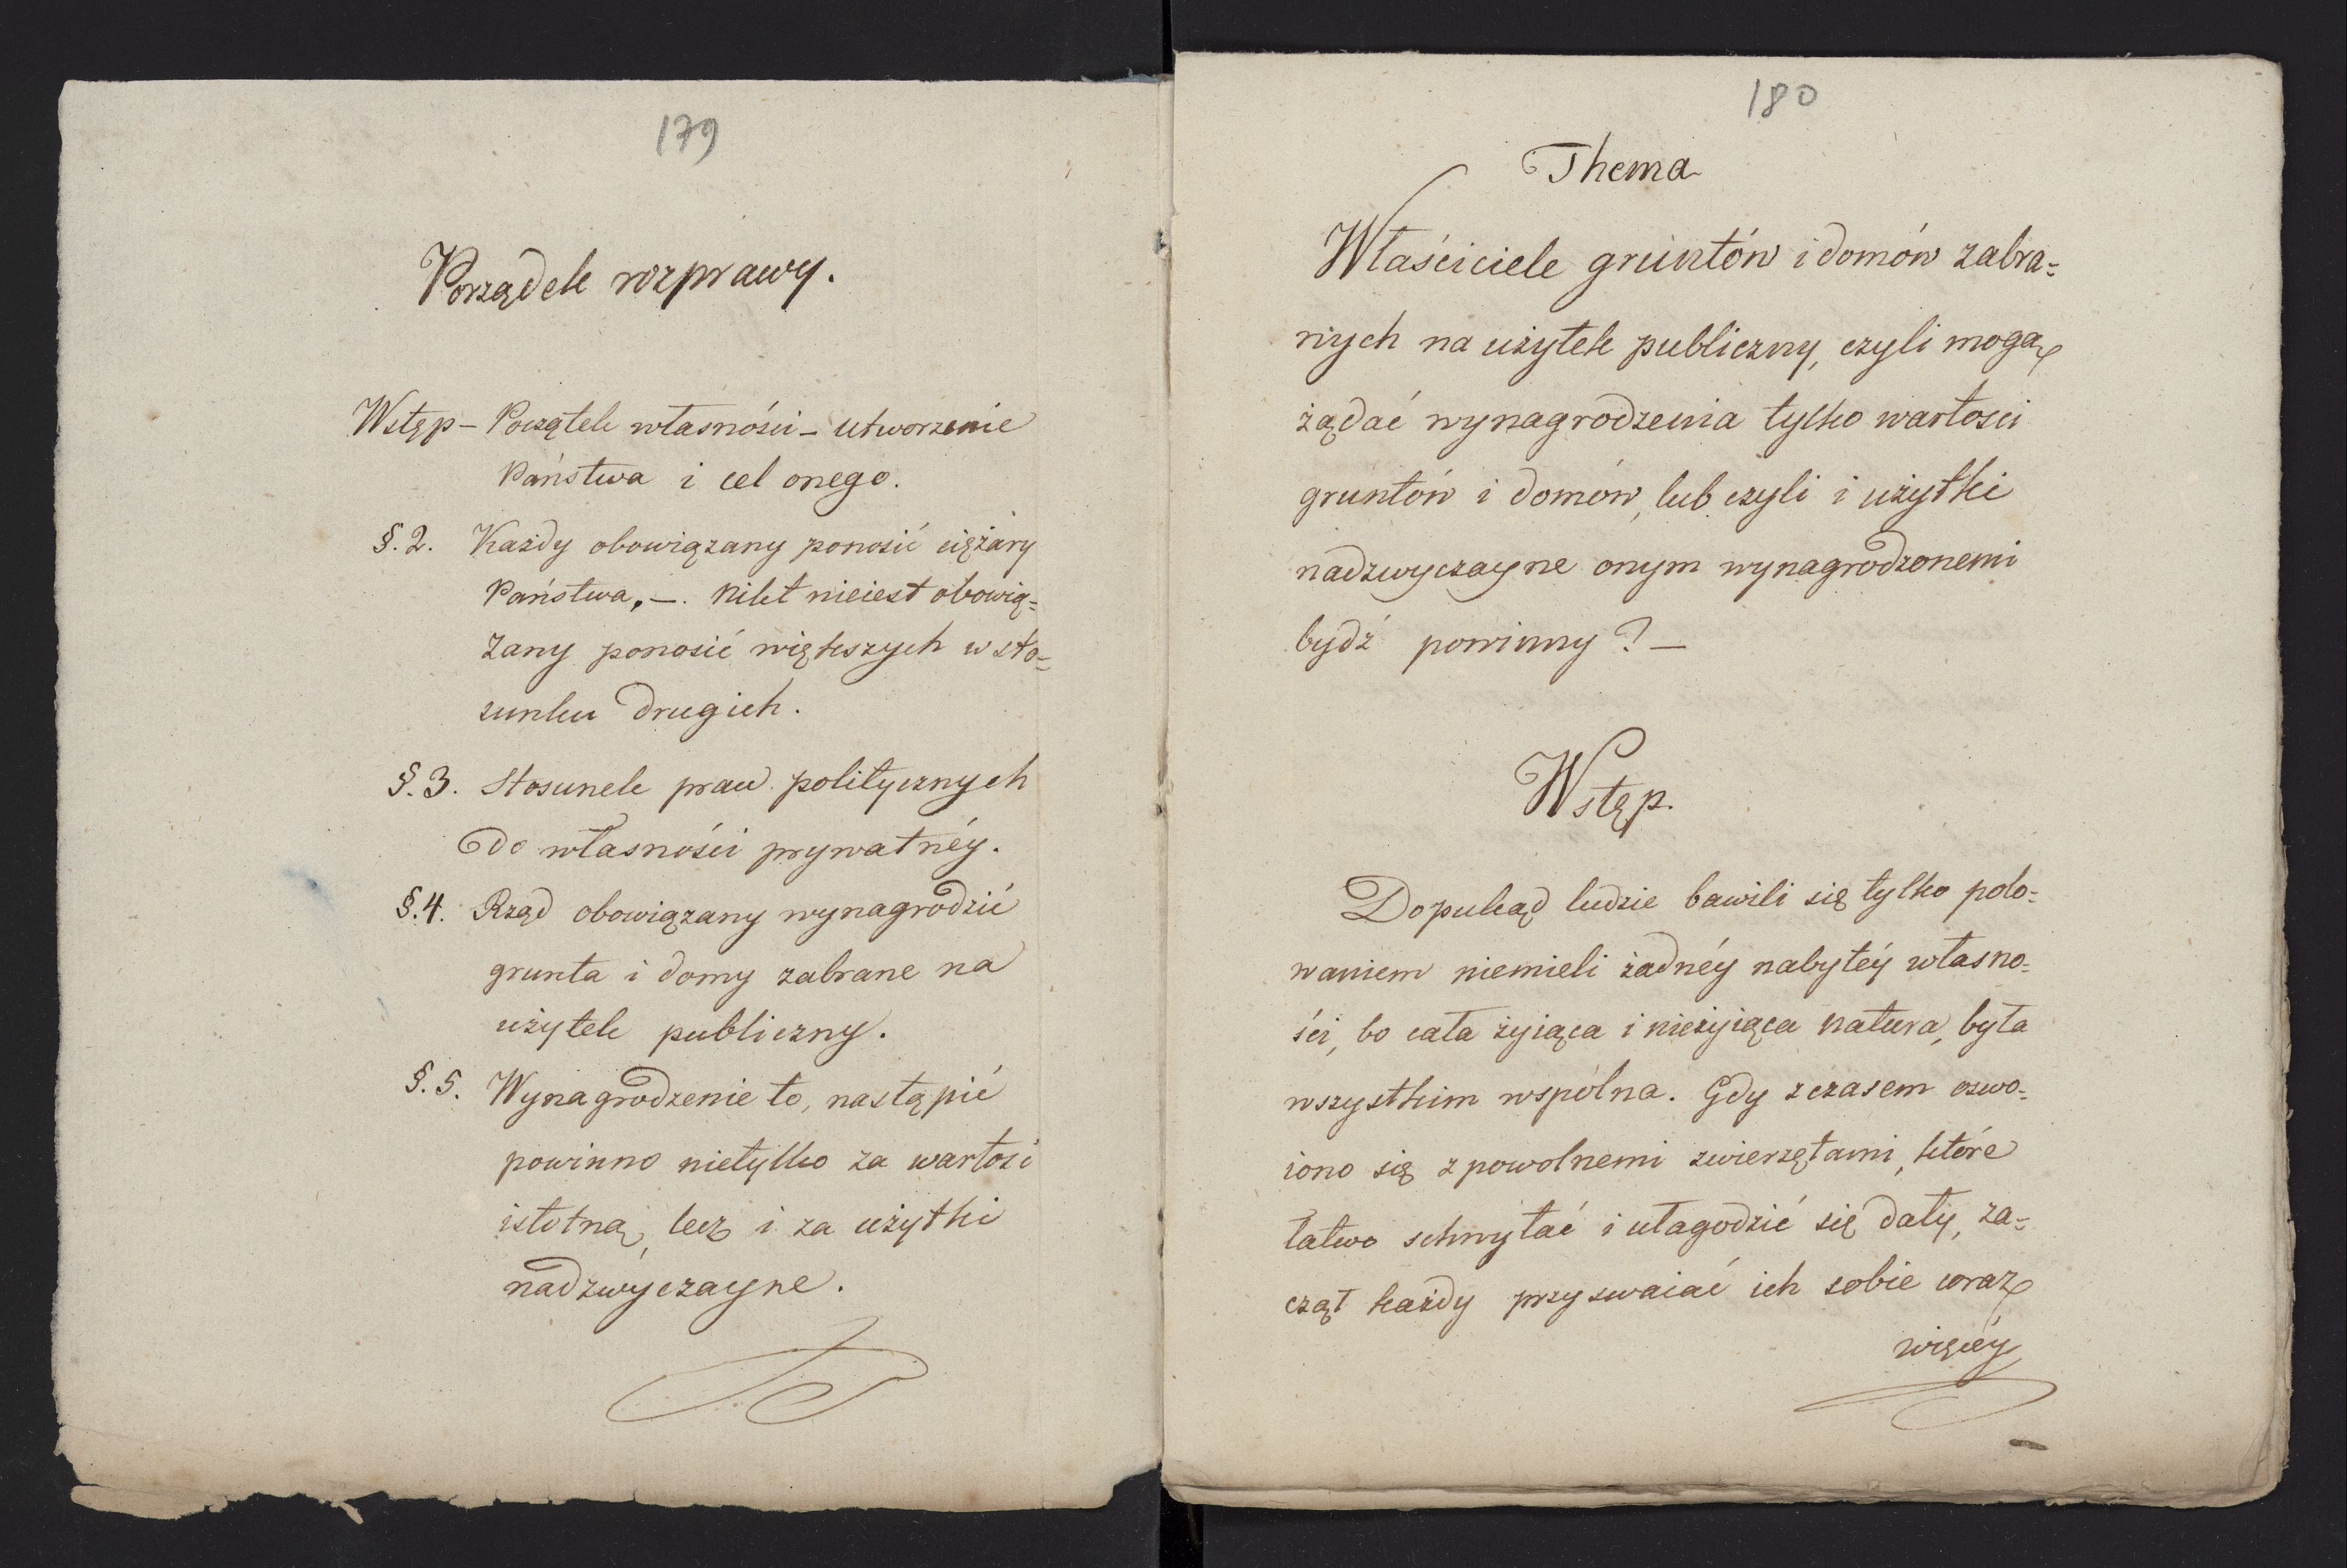 179
Porządek rozprawy.
Wstęp – Początek własności – utworzenie
Państwa i cel onego.
§. 2. Każdy obowiązany ponosić ciężary
Państwa, –. Nikt nieiest obowią=
zany ponosić większych w sto=
sunku drugich.
§. 3. Stosunek praw politycznych
do własności prywatnéy.
§. 4. Rząd obowiązany wynagrodzić
grunta i domy zabrane na
użytek publiczny.
§. 5. Wynagrodzenie to, nastąpić
powinno nietylko za wartość
istotną, lecz i za użytki
nadzwyczayne.
180
Thema
Właściciele gruntów i domów zabra=
nych na użytek publiczny, czyli mogą
żądać wynagrodzenia tylko wartości
gruntów i domów, lub czyli i użytki
nadzwyczayne onym wynagrodzonemi
bydź powinny? –
Wstęp.
Dopukąd ludzie bawili się tylko polo=
waniem niemieli żadnéy nabytéy własno=
ści, bo cała żyiąca i nieżyiąca natura, była
wszystkim wspólna. Gdy z czasem oswo=
iono się z powolnemi zwierzętami, które
łatwo schwytać i ułagodzić się dały, za=
czął każdy przyswaiać ich sobie coraz
więcéy